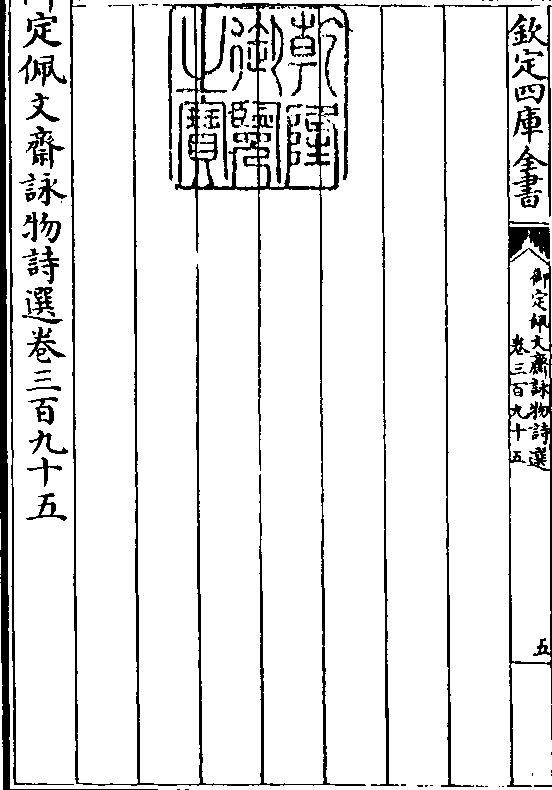 欽定四庫全書
御定佩文齋詠物詩選
卷三百九十五
五
乾隆
御覽
之寶
御定佩文齋詠物詩選卷三百九十五